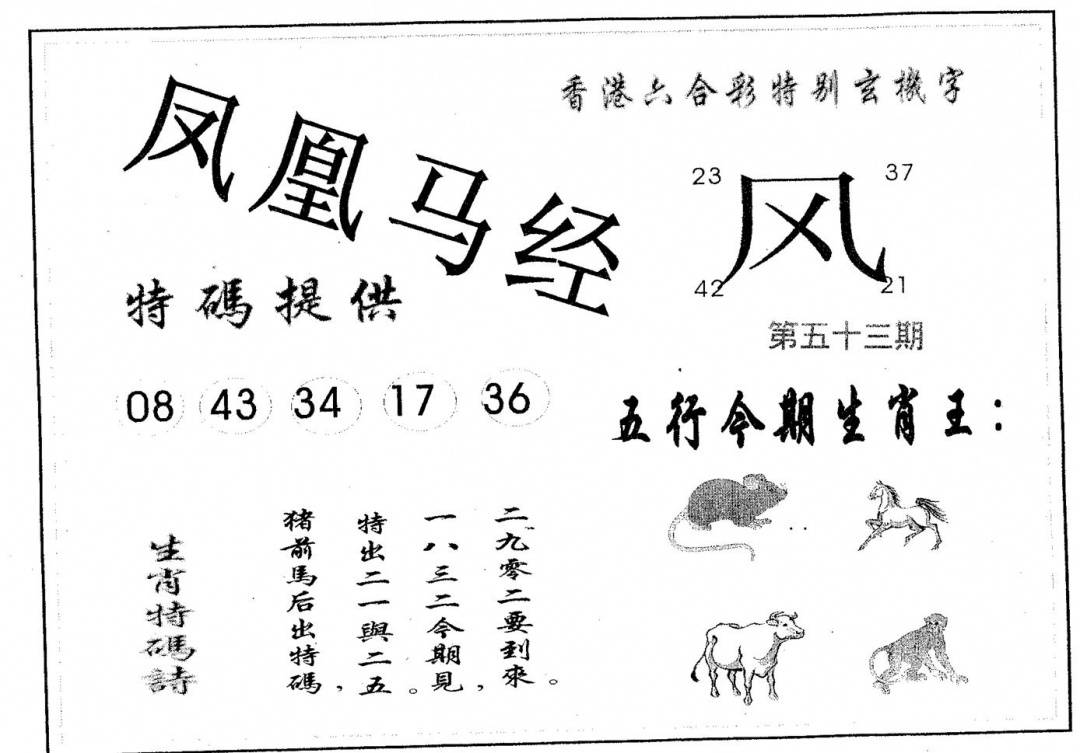 凤凰马经
香港六合彩特别玄機字
23 37
风
42 21
第五十三期
特碼提供
08 43 34 17 36
五行今期生肖王：
生肖特碼詩
猪前馬后出特碼，
特出二一與二五。
一八三二今期見，
二九零二要到來。